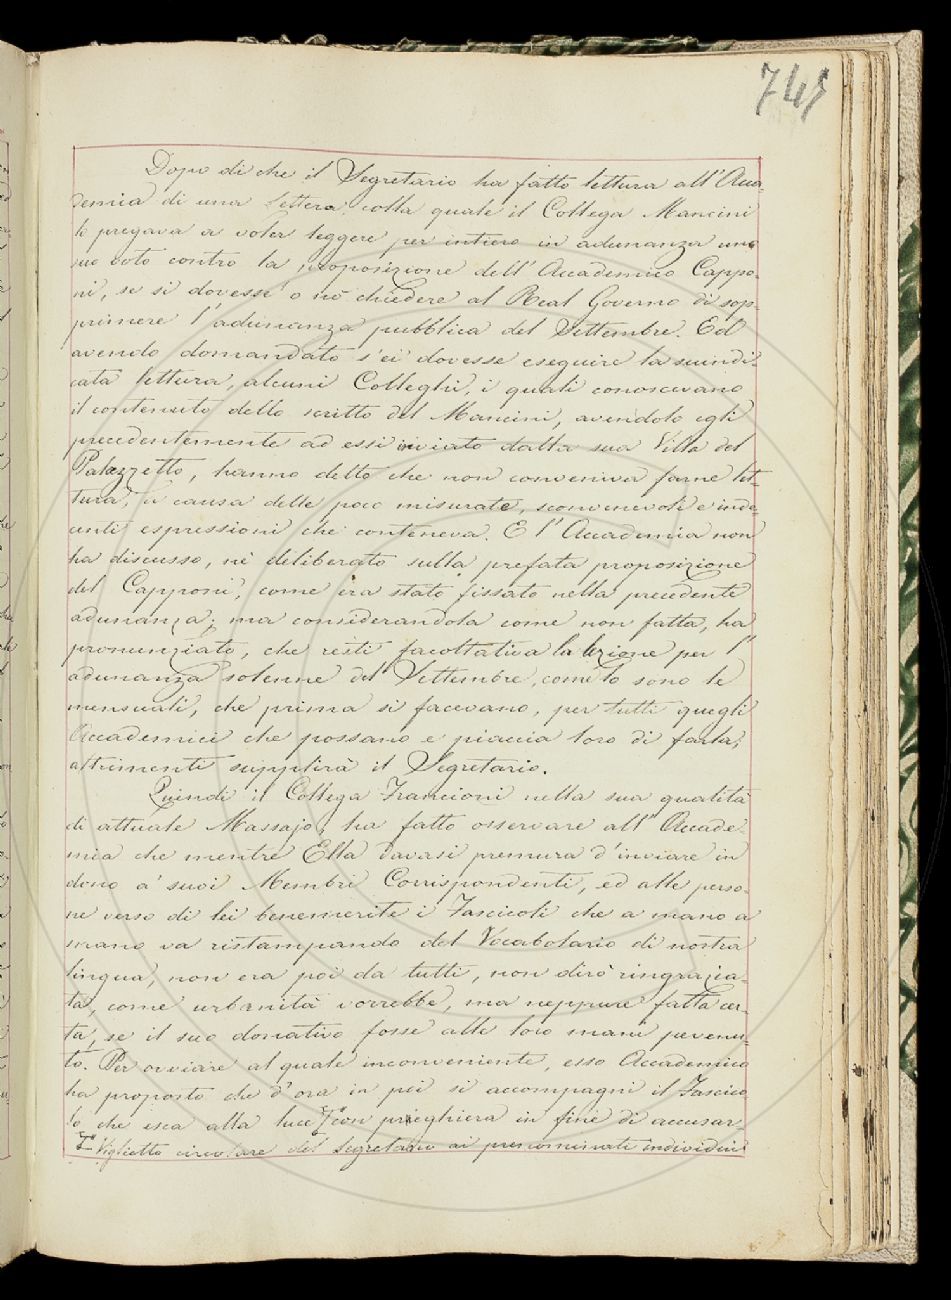 745
Dopo di che il Segretario ha fatto lettura all'Acca-
demia di una Lettera, colla quale il Collega Mancini
lo pregava a voler leggere per intiero in adunanza uno
suo voto contro la proposizione dell'Accademico Cappo-
ni, se si dovesse o nò chiedere al Real Governo di sop-
primere l'adunanza pubblica del Settembre. Ed
avendo domandato s'ei dovesse eseguire la suindi-
cata lettura, alcuni Colleghi, i quali conoscevano
il contenuto dello scritto del Mancini, avendolo egli
precedentemente ad essi inviato dalla sua Villa del
Palazzetto, hanno detto che non conveniva farne let-
tura, a causa delle poco misurate, sconvenevoli e inde-
centi espressioni che conteneva. E l'Accademia non
ha discusso, nè deliberato sulla prefata proposizione
del Capponi, come era stato fissato nella precedente
adunanza; ma considerandola come non fatta, ha
pronunziato, che resti facoltativa la lezione per l'
adunanza solenne del Settembre, come lo sono le
mensuali, che prima si facevano, per tutti quegli
Accademici che possano e piaccia loro di farla;
altrimenti supplirà il Segretario.
Quindi il Collega Francioni nella sua qualità
di attuale Massajo, ha fatto osservare all'Accade-
mia che mentre Ella davasi premura d'inviare in
dono a' suoi Membri Corrispondenti, ed alle perso-
ne verso di lei benemerite i Fascicoli che a mano a
mano va ristampando del Vocabolario di nostra
lingua, non era poi da tutti, non dirò ringrazia-
ta, come urbanità vorrebbe, ma neppure fatta cer-
ta, se il suo donativo fosse alle loro mani pervenu-
to. Per ovviare al quale inconveniente, esso Accademico
ha proposto che d'ora in poi si accompagni il Fascico
lo che esca alla luce con preghiera in fine di accusar-
Viglietto circolare del Segretario ai prenominati individui